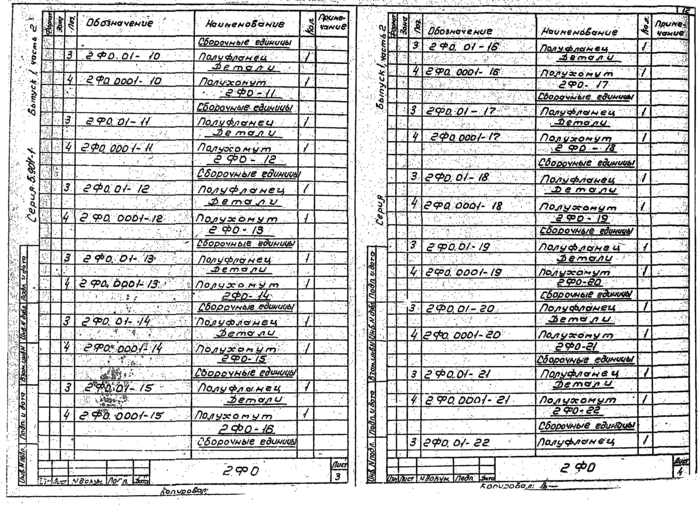 Серия 5.904-1 Выпуск 1, часть 2
Формат Зона Поз. Обозначение Наименование Кол. Примечание
Сборочные единицы
3 2ФО.01-10 Полуфланец 1
Детали
4 2ФО.0001-10 Полухомут 1
2ФО-11
Сборочные единицы
3 2ФО.01-11 Полуфланец 1
Детали
4 2ФО.0001-11 Полухомут 1
2ФО-12
Сборочные единицы
3 2ФО.01-12 Полуфланец 1
Детали
4 2ФО.0001-12 Полухомут 1
2ФО-13
Сборочные единицы
3 2ФО.01-13 Полуфланец 1
Детали
4 2ФО.0001-13 Полухомут 1
2ФО-14
Сборочные единицы
3 2ФО.01-14 Полуфланец 1
Детали
4 2ФО.0001-14 Полухомут 1
2ФО-15
Сборочные единицы
3 2ФО.01-15 Полуфланец 1
Детали
4 2ФО.0001-15 Полухомут 1
2ФО-16
Сборочные единицы
Инв.N подл. Подп. и дата Взам.инв.N Инв.N дубл. Подп. и дата
Лист N докум. Подп. Дата
2ФО
Лист
3
Копировал:
12
Серия Выпуск 1, часть 2
Формат Зона Поз. Обозначение Наименование Кол. Примечание
3 2ФО.01-16 Полуфланец 1
Детали
4 2ФО.0001-16 Полухомут 1
2ФО-17
Сборочные единицы
3 2ФО.01-17 Полуфланец 1
Детали
4 2ФО.0001-17 Полухомут 1
2ФО-18
Сборочные единицы
3 2ФО.01-18 Полуфланец 1
Детали
4 2ФО.0001-18 Полухомут 1
2ФО-19
Сборочные единицы
3 2ФО.01-19 Полуфланец 1
Детали
4 2ФО.0001-19 Полухомут 1
2ФО-20
Сборочные единицы
3 2ФО.01-20 Полуфланец 1
Детали
4 2ФО.0001-20 Полухомут 1
2ФО-21
Сборочные единицы
3 2ФО.01-21 Полуфланец 1
Детали
4 2ФО.0001-21 Полухомут 1
2ФО-22
Сборочные единицы
3 2ФО.01-22 Полуфланец 1
Инв.N подл. Подп. и дата Взам.инв.N Инв.N дубл. Подп. и дата
Лист N докум. Подп. Дата
2ФО
Лист
4
Копировал: